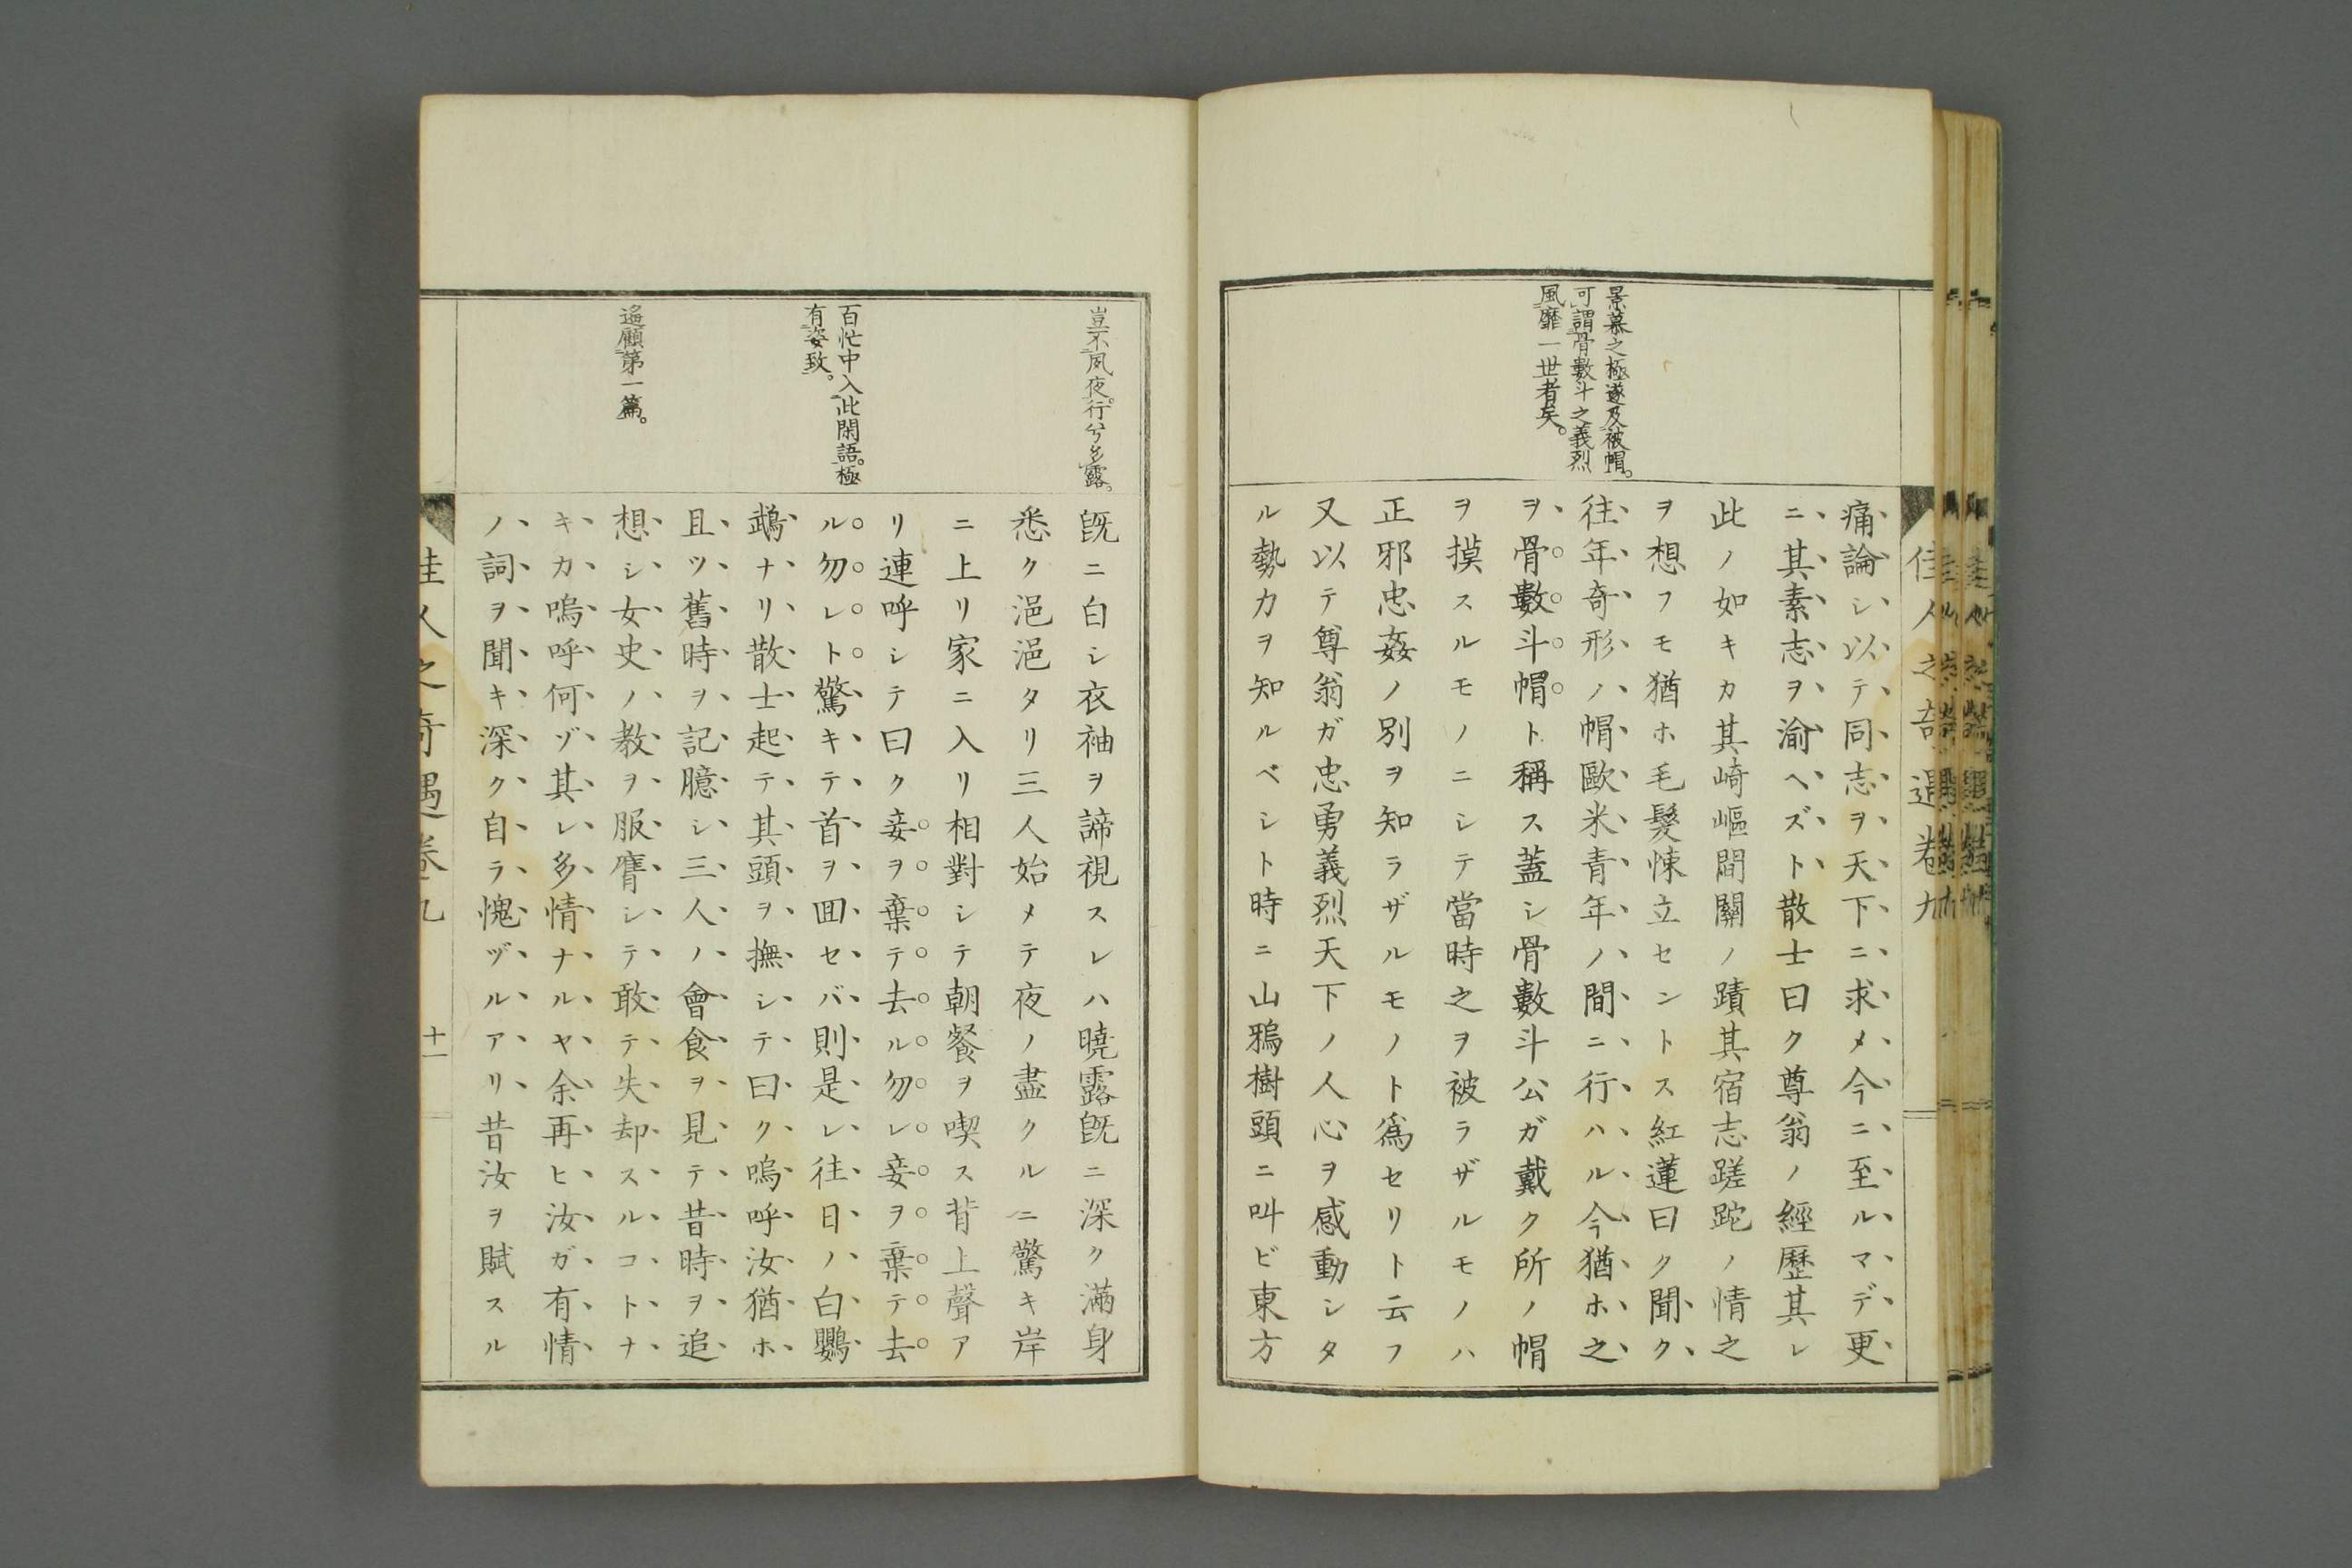 佳人之奇遇卷九
景慕之極遂及被帽。
可謂骨數斗之義烈
風靡一世者矣。
痛論シ以テ同志ヲ天下ニ求メ今ニ至ルマデ更
ニ其素志ヲ渝ヘズト散士曰ク尊翁ノ經歷其レ
此ノ如キカ其崎嶇間關ノ蹟其宿志蹉跎ノ情之
ヲ想フモ猶ホ毛髮悚立セントス紅蓮曰ク聞ク
往年奇形ノ帽歐米青年ノ間ニ行ハル今猶ホ之
ヲ骨數斗帽ト稱ス蓋シ骨數斗公ガ戴ク所ノ帽
ヲ摸スルモノニシテ當時之ヲ被ラザルモノハ
正邪忠姦ノ別ヲ知ラザルモノト爲セリト云フ
又以テ尊翁ガ忠勇義烈天下ノ人心ヲ感動シタ
ル勢力ヲ知ルベシト時ニ山鴉樹頭ニ叫ビ東方
豈不夙夜。行兮多露。
百忙中入此閑語。極
有姿致。
遙顧第一篇。
既ニ白シ衣袖ヲ諦視スレハ曉露既ニ深ク滿身
悉ク浥浥タリ三人始メテ夜ノ盡クルニ驚キ岸
ニ上リ家ニ入リ相對シテ朝餐ヲ喫ス背上聲ア
リ連呼シテ曰ク妾ヲ棄テ去ル勿レ妾ヲ棄テ去
ル勿レト驚キテ首ヲ囬セバ則是レ往日ノ白鸚
鵡ナリ散士起テ其頭ヲ撫シテ曰ク嗚呼汝猶ホ
且ツ舊時ヲ記臆シ三人ノ會食ヲ見テ昔時ヲ追
想シ女史ノ教ヲ服膺シテ敢テ失却スルコトナ
キカ嗚呼何ゾ其レ多情ナルヤ余再ヒ汝ガ有情
ノ詞ヲ聞キ深ク自ラ愧ヅルアリ昔汝ヲ賦スル
佳人之奇遇卷九
十一